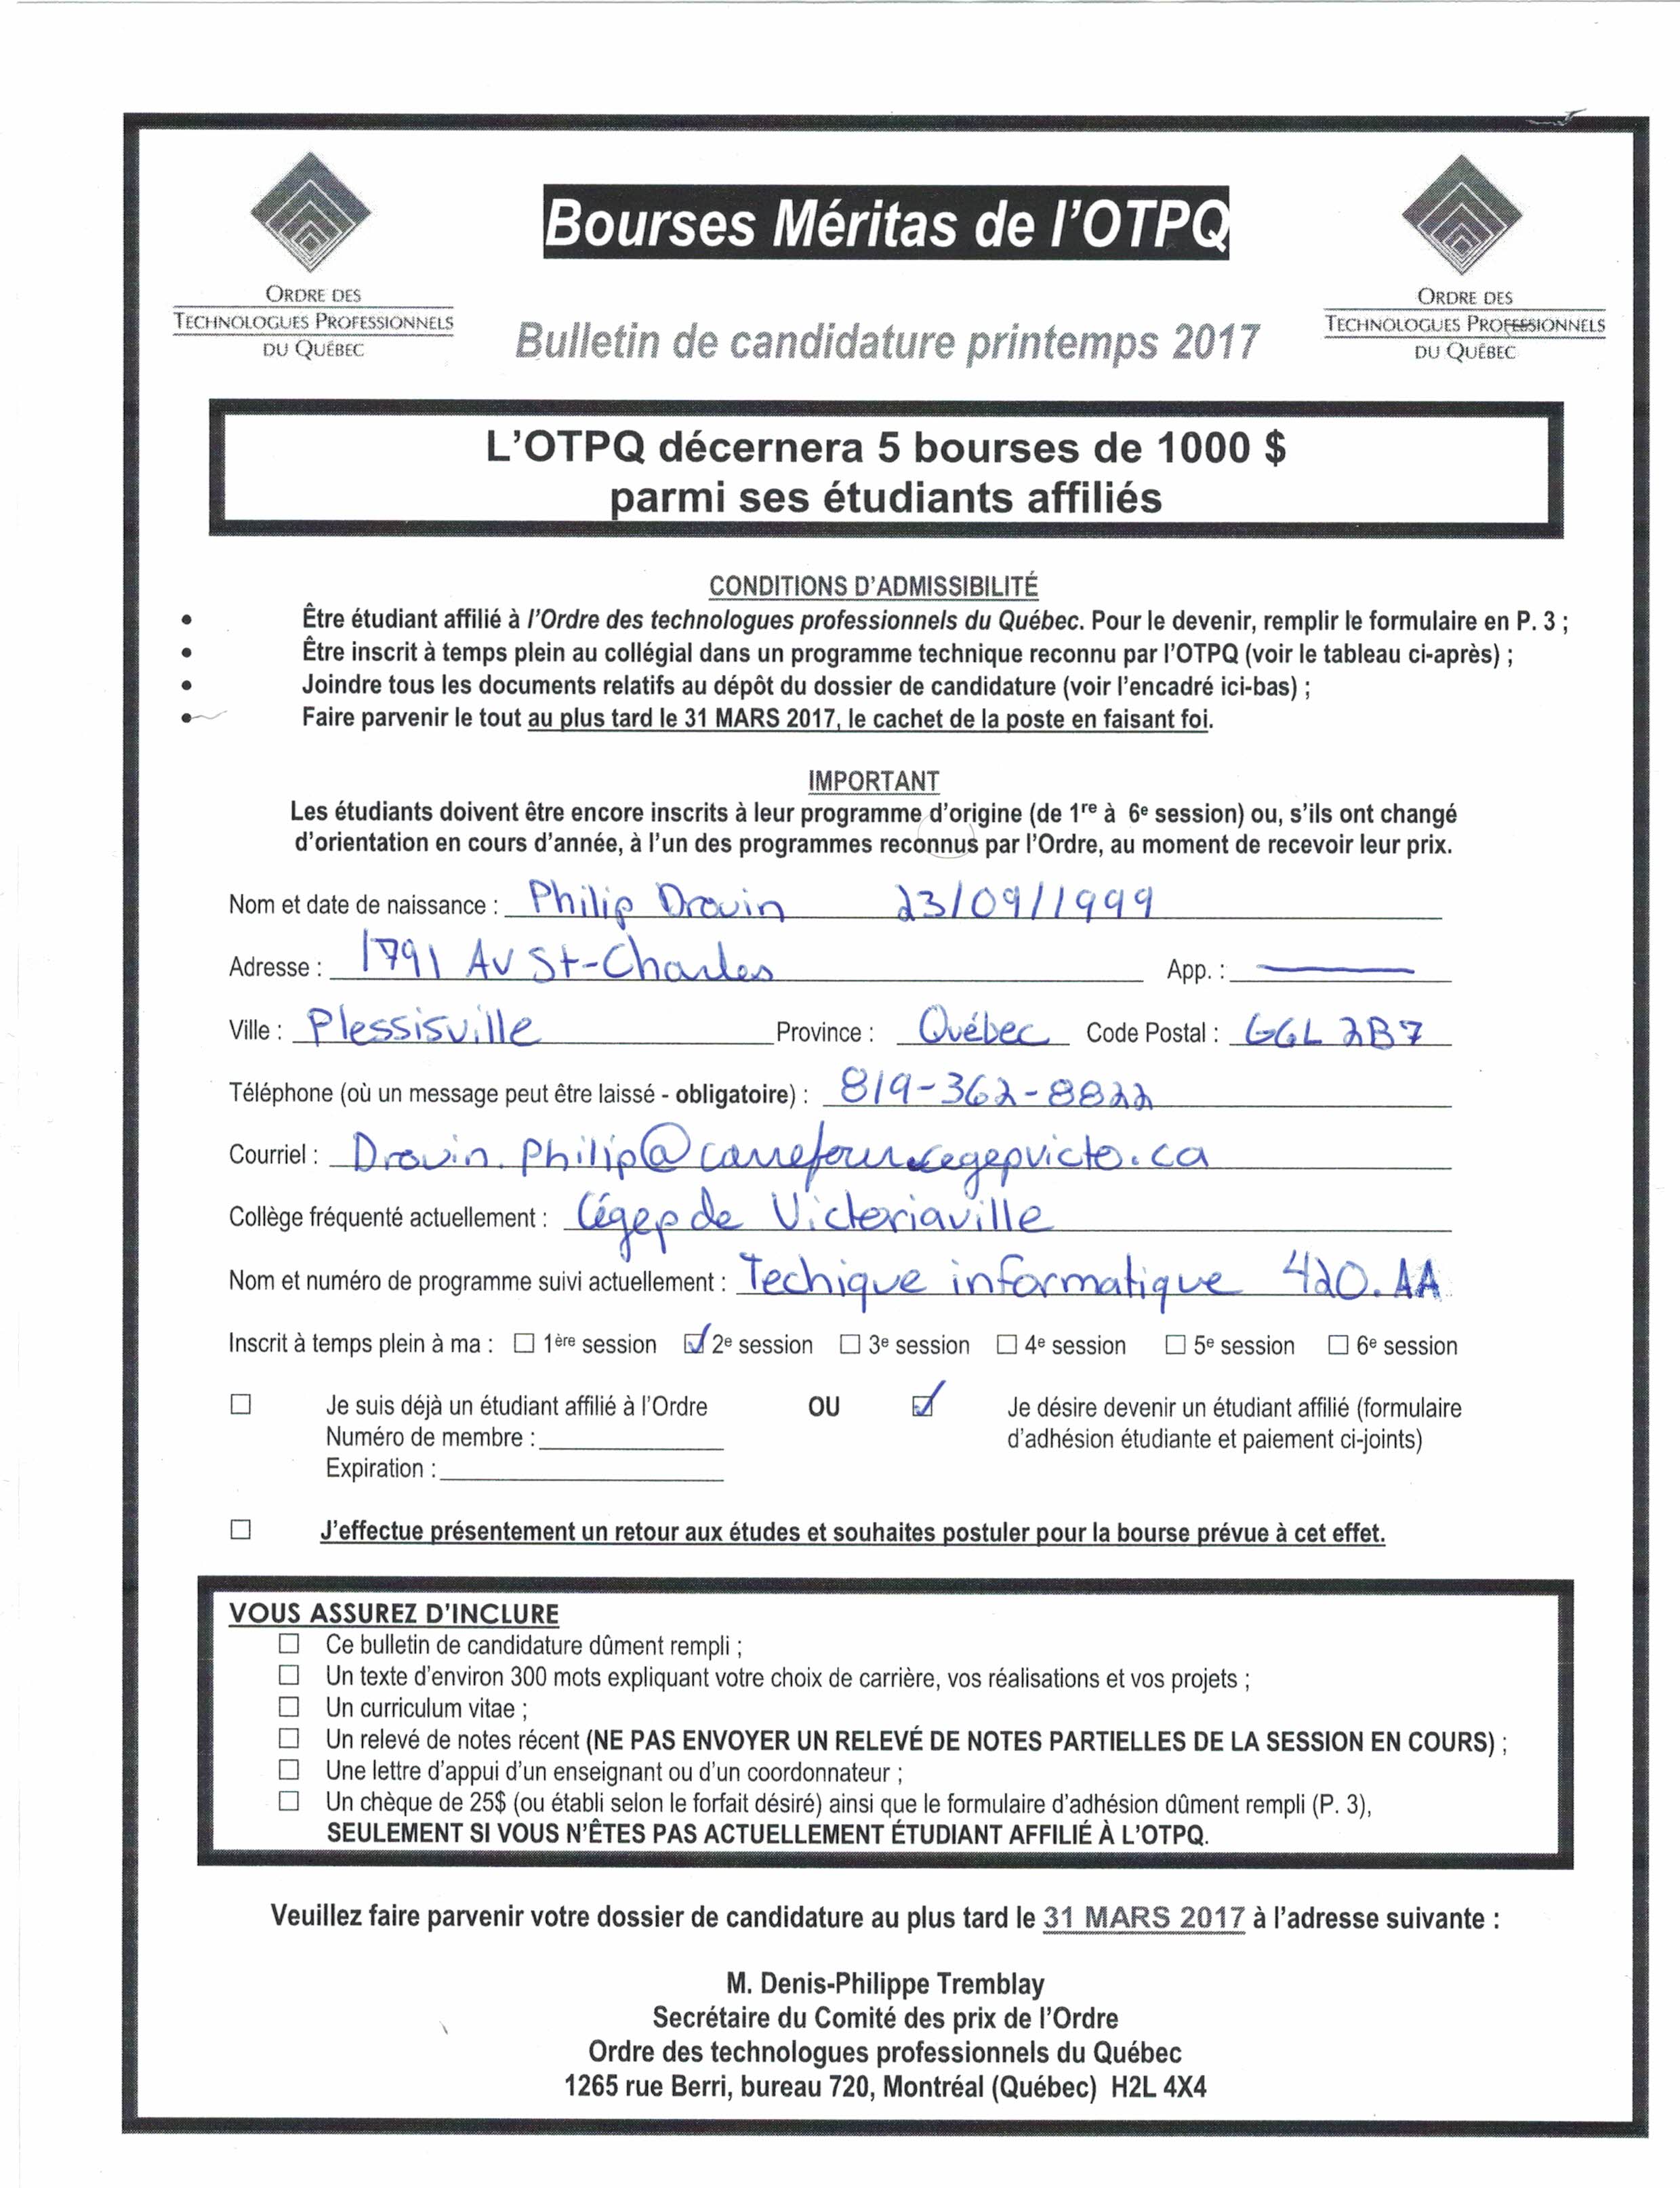 Bourses Méritas de l'OTPQ
ORDRE DES
TECHNOLOGUES PROFESSIONNELS
DU QUÉBEC
ORDRE DES
TECHNOLOGUES PROFESSIONNELS
DU QUÉBEC
Bulletin de candidature printemps 2017
L'OTPQ décernera 5 bourses de 1000 $
parmi ses étudiants affiliés
CONDITIONS D'ADMISSIBILITÉ
• Être étudiant affilié à l'Ordre des technologues professionnels du Québec. Pour le devenir, remplir le formulaire en P. 3 ;
• Être inscrit à temps plein au collégial dans un programme technique reconnu par l'OTPQ (voir le tableau ci-après) ;
• Joindre tous les documents relatifs au dépôt du dossier de candidature (voir l'encadré ici-bas) ;
• Faire parvenir le tout au plus tard le 31 MARS 2017, le cachet de la poste en faisant foi.
IMPORTANT
Les étudiants doivent être encore inscrits à leur programme d'origine (de 1re à 6e session) ou, s'ils ont changé
d'orientation en cours d'année, à l'un des programmes reconnus par l'Ordre, au moment de recevoir leur prix.
Nom et date de naissance : Philip Drouin 23/09/1999
Adresse : 1791 Av St-Charles App. :
Ville : Plessisville Province : Québec Code Postal : G6L 2B7
Téléphone (où un message peut être laissé - obligatoire) : 819-362-8822
Courriel : Drouin.Philip@carrefour.cegepvicto.ca
Collège fréquenté actuellement : Cégep de Victoriaville
Nom et numéro de programme suivi actuellement : Techique informatique 420.AA
Inscrit à temps plein à ma : ☐ 1ère session ☑ 2e session ☐ 3e session ☐ 4e session ☐ 5e session ☐ 6e session
☐ Je suis déjà un étudiant affilié à l'Ordre OU ☑ Je désire devenir un étudiant affilié (formulaire
Numéro de membre : d'adhésion étudiante et paiement ci-joints)
Expiration :
☐ J'effectue présentement un retour aux études et souhaites postuler pour la bourse prévue à cet effet.
VOUS ASSUREZ D'INCLURE
☐ Ce bulletin de candidature dûment rempli ;
☐ Un texte d'environ 300 mots expliquant votre choix de carrière, vos réalisations et vos projets ;
☐ Un curriculum vitae ;
☐ Un relevé de notes récent (NE PAS ENVOYER UN RELEVÉ DE NOTES PARTIELLES DE LA SESSION EN COURS) ;
☐ Une lettre d'appui d'un enseignant ou d'un coordonnateur ;
☐ Un chèque de 25$ (ou établi selon le forfait désiré) ainsi que le formulaire d'adhésion dûment rempli (P. 3),
SEULEMENT SI VOUS N'ÊTES PAS ACTUELLEMENT ÉTUDIANT AFFILIÉ À L'OTPQ.
Veuillez faire parvenir votre dossier de candidature au plus tard le 31 MARS 2017 à l'adresse suivante :
M. Denis-Philippe Tremblay
Secrétaire du Comité des prix de l'Ordre
Ordre des technologues professionnels du Québec
1265 rue Berri, bureau 720, Montréal (Québec) H2L 4X4